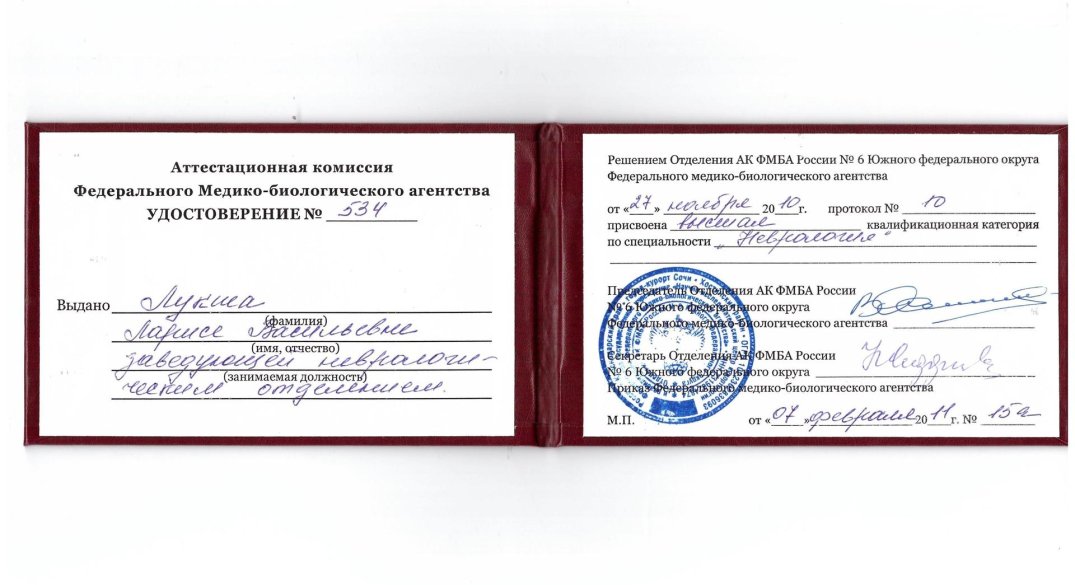 Аттестационная комиссия
Федерального Медико-биологического агентства
УДОСТОВЕРЕНИЕ № 534
Выдано Лукша
(фамилия)
Ларисе Васильевне
(имя, отчество)
заведующей невроло­ги-
(занимаемая должность)
ческим отделением.
Решением Отделения АК ФМБА России № 6 Южного федерального округа
Федерального медико-биологического агентства
от «27» ноября 2010г. протокол № 10
присвоена высшая квалификационная категория
по специальности „Неврология“
Председатель Отделения АК ФМБА России
№ 6 Южного федерального округа
Федерального медико-биологического агентства
Секретарь Отделения АК ФМБА России
№ 6 Южного федерального округа
Приказ Федерального медико-биологического агентства
М.П. от «07» февраля 2011г. № 15а